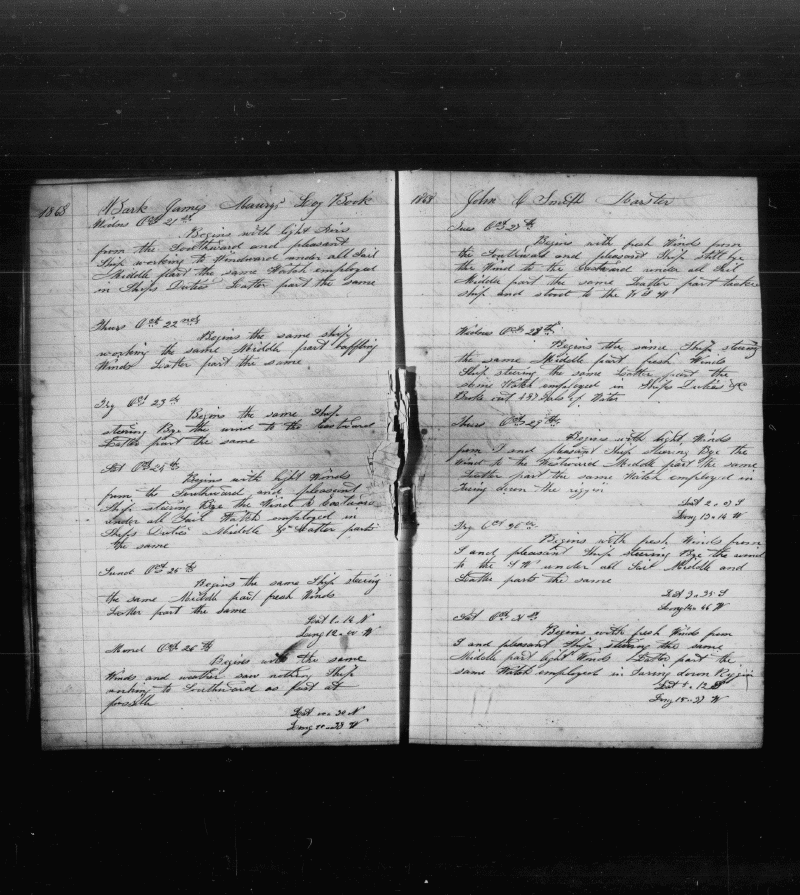 1868 Bark James Maury's Log Book
Wednes Oct 21st
Begins with light Airs
from the Southward and pleasant
Ship working to Windward under all Sail
Middle part the same Watch employed
in Ships Duties Latter part the same
Thurs Oct 22nd
Begins the same ship
working the same Middle part baffling
Winds Latter part the same
Fry Oct 23th
Begins the same Ship
steering Bye the wind to the Eastward
Latter part the same
Sat Oct 24th
Begins with light Winds
from the Southward and pleasant
Ship steering Bye the Wind to Eastward
under all Sail Watch employed in
Ships Duties Middle & Latter parts
the same
Sund Oct 25th
Begins the same Ship steering
the same Middle part fresh Winds
Latter part the same
Latt 1 16 N
Long 12 W
Mond Oct 26th
Begins with the same
Winds and weather saw nothing Ship
working to Southward as fast as
possible
Latt 30 N
Long 33 W
1868 John C Smith Master
Tues Oct 27th
Begins with fresh Winds from
the Southward and pleasant Ship still bye
the Wind to the Eastward under all Sail
Middle part the same Latter part tacked
ship and stood to the W
Wednes Oct 28th
Begins the same Ship steering
the same Middle part fresh Winds
Ship steering the same Latter part the
same Watch employed in Ships Duties &c
Broke out of Water
Thurs Oct 29th
Begins with light Winds
from S and pleasant Ship steering Bye the
Wind to the Westward Middle part the same
Latter part the same Watch employed in
Taring down the riggin
Latt 2 03 S
Long 13 14 W
Fry Oct 30th
Begins with fresh Winds from
S and pleasant Ship steering Bye the wind
to the S W under all Sail Middle and
Latter parts the same
Latt 3 35 S
Long 14 46 W
Sat Oct 31st
Begins with fresh Winds from
S and pleasant Ship steering the same
Middle part light Winds Latter part the
same Watch employed in Taring down Riggin
Latt 12 S
Long 15 33 W